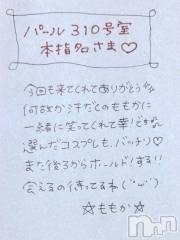 パール310号室
本指名さま♡
今回も来てくれてありがとう
何故か汗だくのももかに
一緒に笑ってくれて幸せだなぁ
選んだコスプレも、バッチリ♡
また後ろからホールドする!!
会えるの待ってるね(˘ω˘)
☆ももか☆